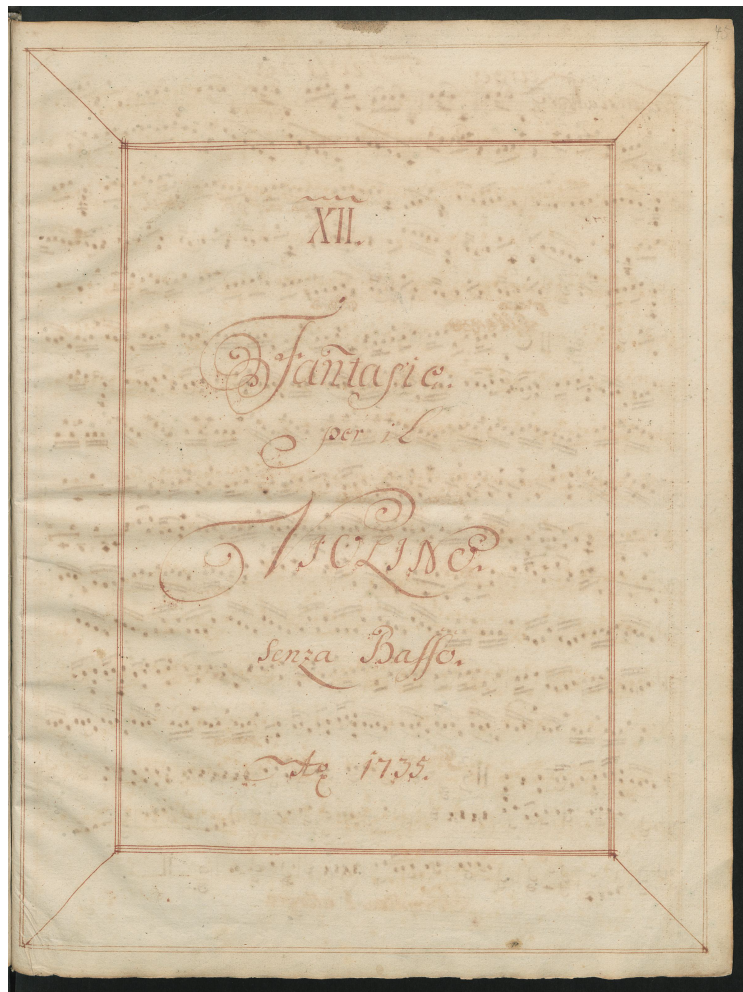 XII.
Fantasie.
per il
VIOLINO.
Senza Basso.
Ao 1735.